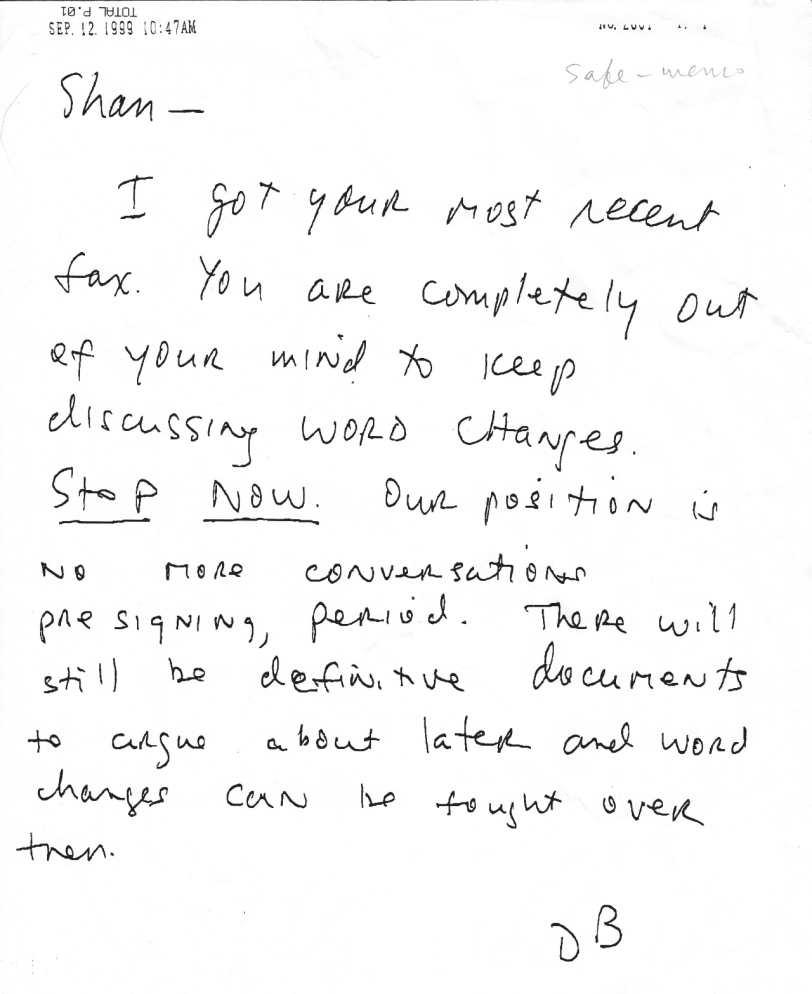 TOTAL P.01
SEP. 12. 1999 10:47AM
Safe-memo
Shan —
I got your most recent
fax. You are completely out
of your mind to keep
discussing WORD CHANGES.
Stop NOW. Our position is
NO MORE conversations
pre signing, period. There will
still be definitive documents
to argue about later and word
changes can be fought over
then.
DB